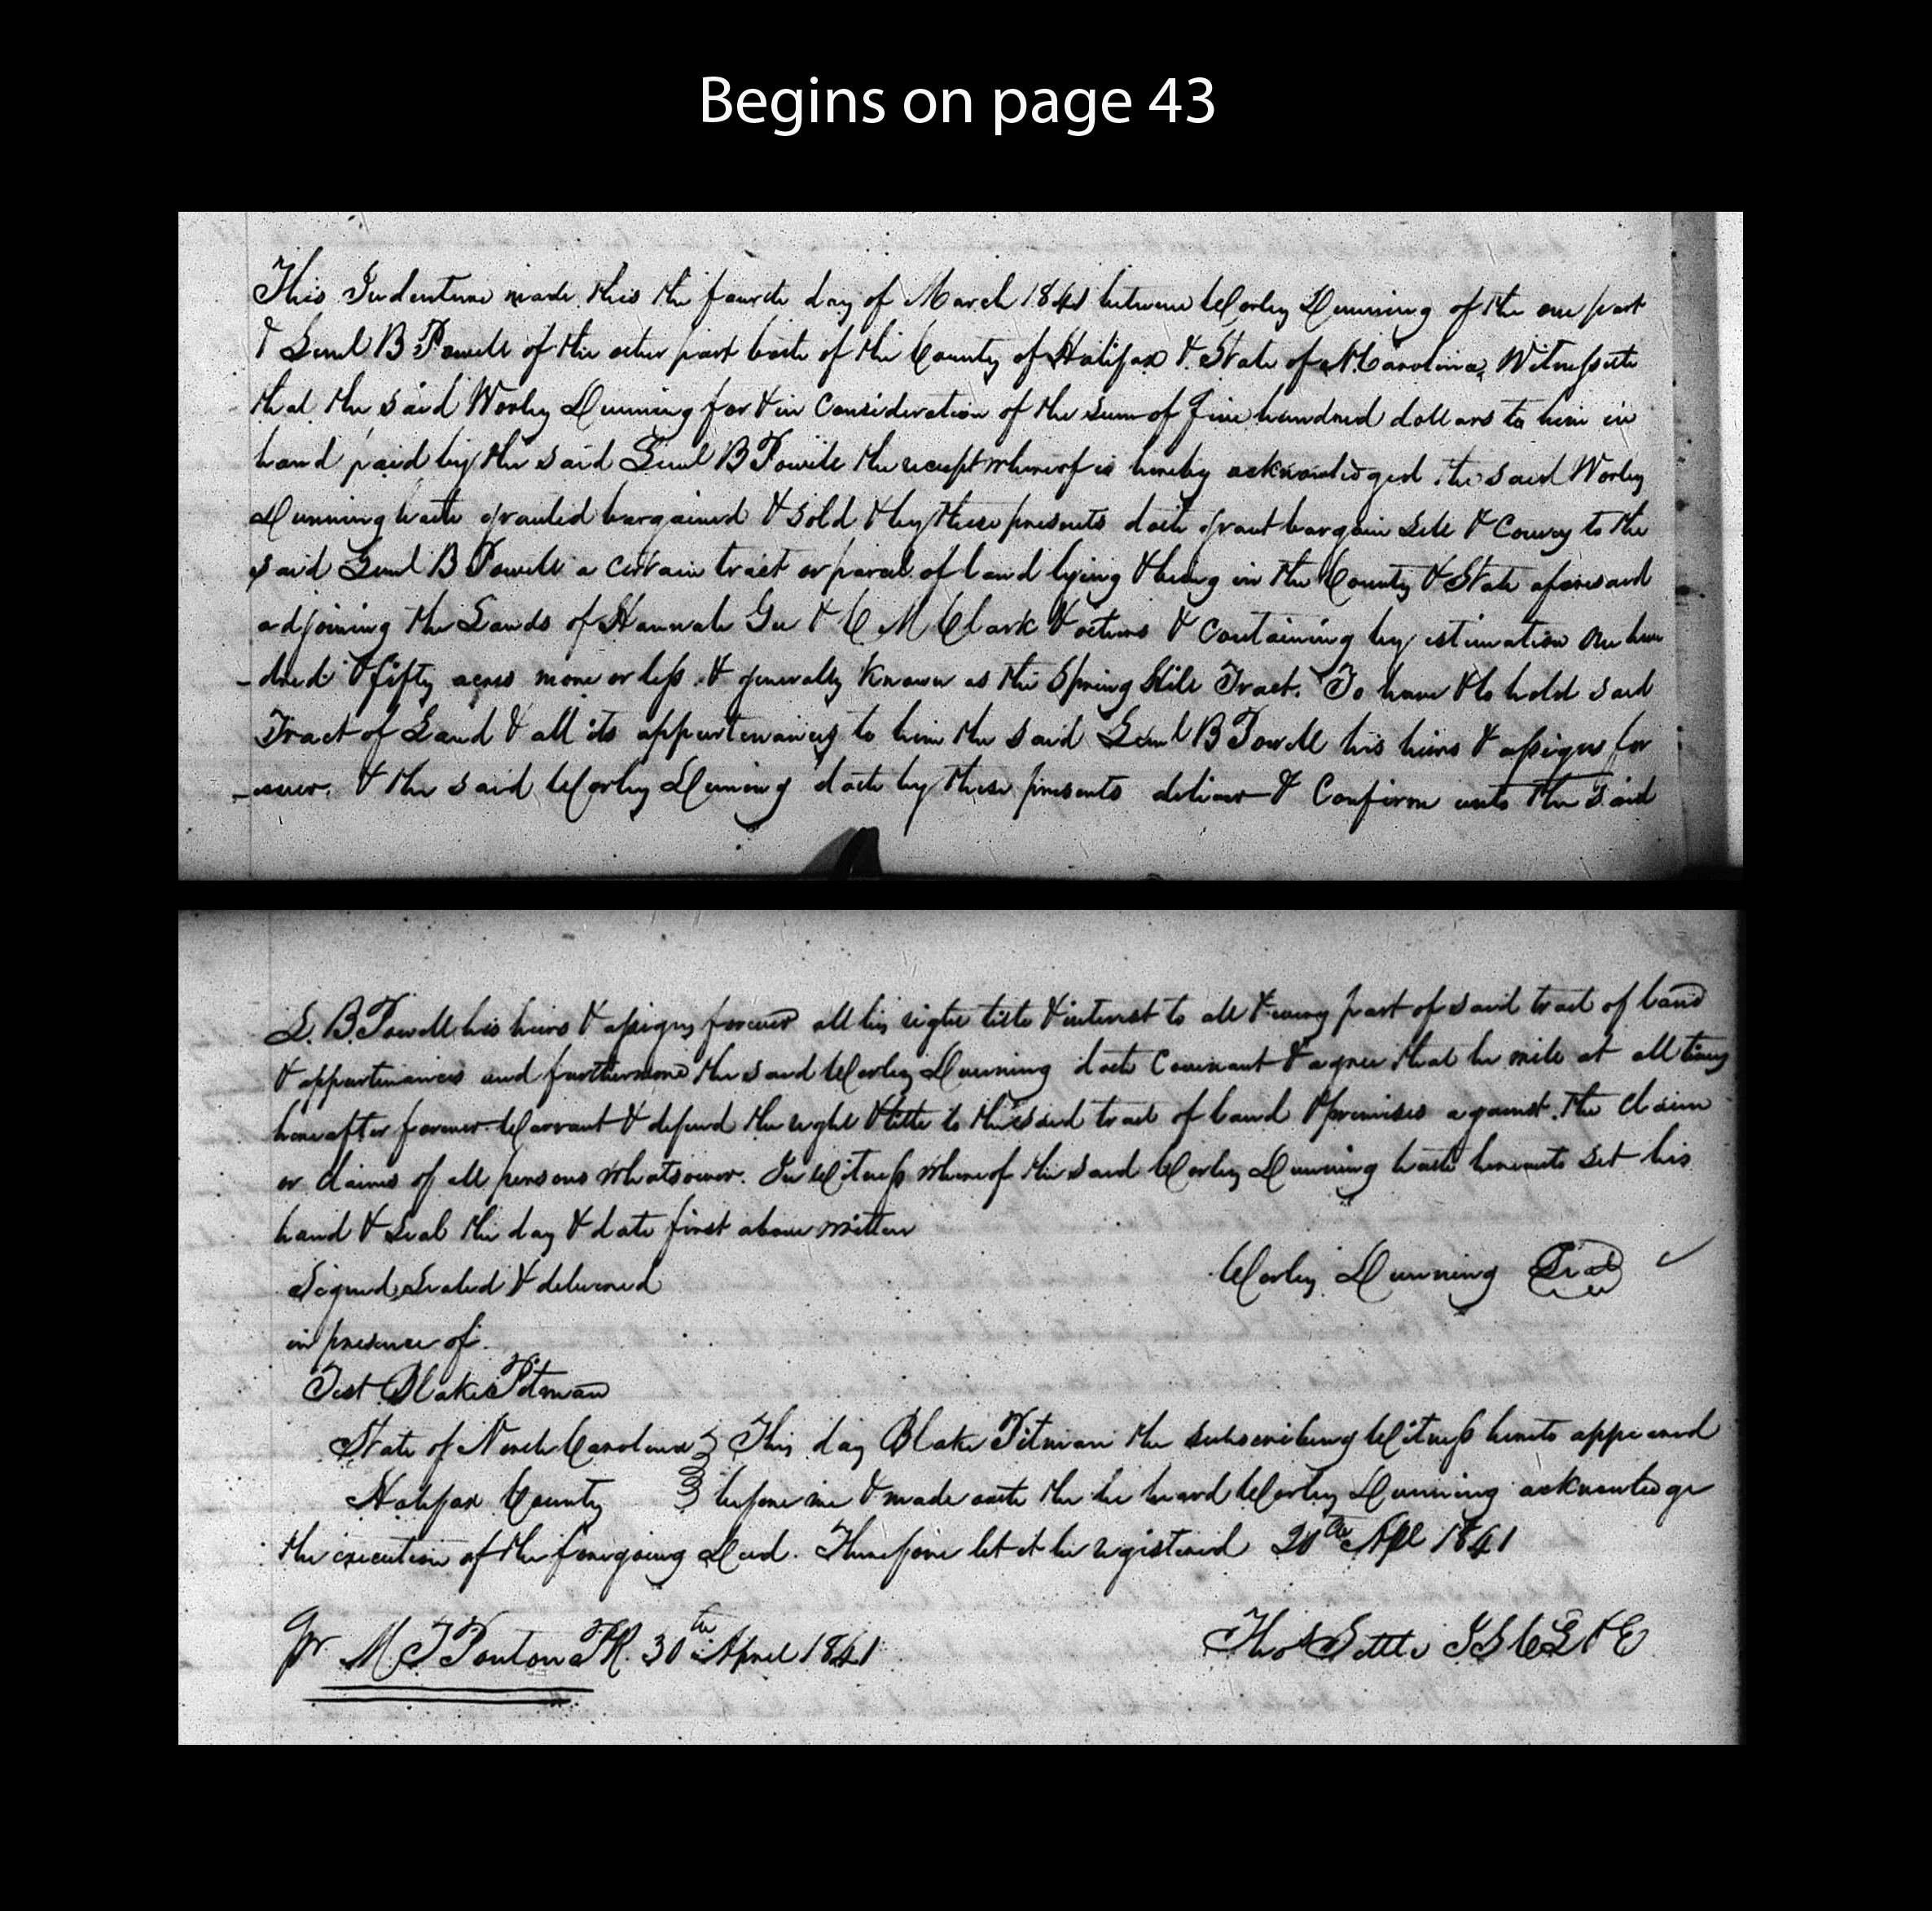 Begins on page 43
This Indenture made this the fourth day of March 1841 between Worley Dunning of the one part
& Leml B Powell of the other part both of the County of Halifax & State of N. Carolina, Witnesseth
that the said Worley Dunning for & in Consideration of the sum of five hundred dollars to him in
hand paid by the said Leml B Powell the receipt whereof is hereby acknowledged the said Worley
Dunning hath granted bargained & sold & by these presents doth grant bargain sell & Convey to the
said Leml B Powell a certain tract or parcel of land lying & being in the County & State aforesaid
adjoining the Lands of Hannah Gee & C M Clark & others & Containing by estimation One hun
-dred & fifty acres more or less & generally Known as the Spring Hill Tract. To have & to hold said
Tract of Land & all its appurtenances to him the said Leml B Powell his heirs & assigns for
-ever. & the said Worley Dunning doth by these presents deliver & Confirm unto the said
L. B. Powell his heirs & assigns forever all his right title & interest to all & every part of said tract of land
& appurtenances and furthermore the said Worley Dunning doth Covenant & agree that he will at all times
hereafter forever Warrant & defend the right & title to the said tract of land & premises against the claim
or claims of all persons whatsoever. In Witness whereof the said Worley Dunning hath hereunto set his
hand & Seal the day & date first above written
Signed, Sealed & delivered
Worley Dunning Seal
in presence of
Test Blake Pitman
State of North Carolina This day Blake Pitman the subscribing Witness hereto appeared
Halifax County before me & made oath the he heard Worley Dunning acknowledge
the execution of the foregoing Deed. Therefore let it be registered 20th Apl 1841
Thos Settle J S C L & E
Pr M. T Ponton P.R. 30th April 1841